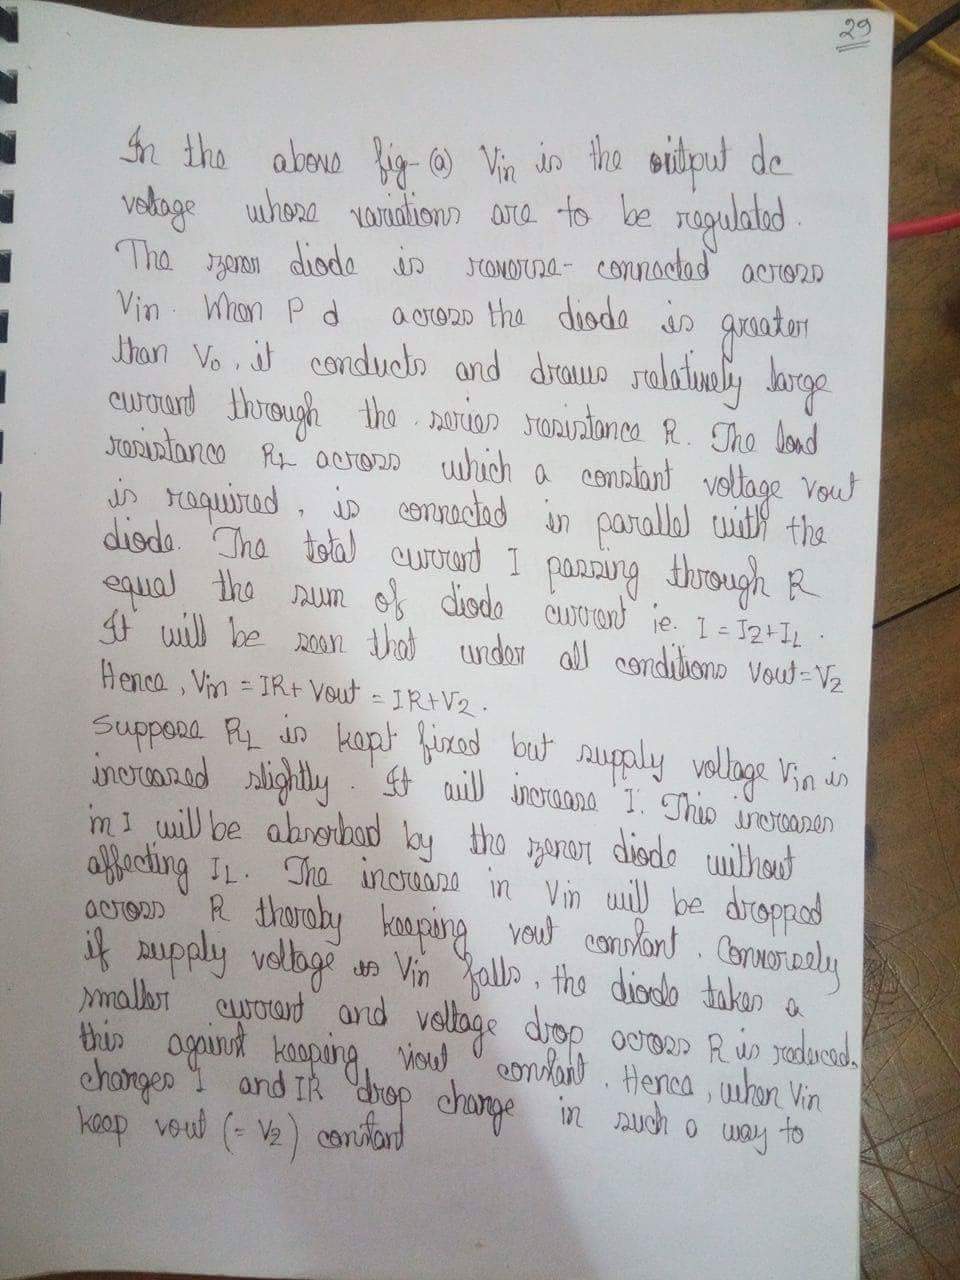 29
In the above fig-(a) Vin is the output dc
voltage whose variations are to be regulated.
The zener diode is reverse-connected across
Vin. When P d across the diode is greater
than V0, it conducts and draws relatively large
current through the series resistance R. The load
resistance RL across which a constant voltage vout
is required, is connected in parallel with the
diode. The total current I passing through R
equal the sum of diode current ie. I = IZ+IL.
It will be seen that under all conditions Vout=VZ
Hence, Vin = IR+Vout = IR+VZ.
Suppose RL is kept fixed but supply voltage Vin is
increased slightly. It will increase I. This increases
in I will be absorbed by the zener diode without
affecting IL. The increase in Vin will be dropped
across R thereby keeping vout constant. Conversely
if supply voltage Vin falls, the diode takes a
smaller current and voltage drop across R is reduced,
this against keeping vout constant. Hence, when Vin
changes I and IR drop change in such a way to
keep vout (= VZ) constant